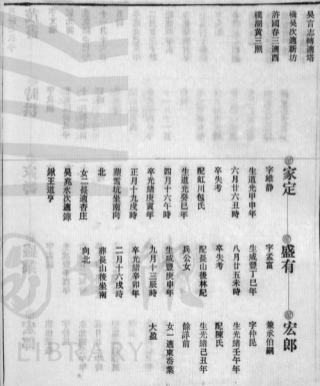 吳言志轉適塔
橋吳次適新坊
許國春三適西
樸湖黃三照
家定
字維靜
生道光甲申年
六月廿六丑時
卒失考
配虹川包氏
生道光癸巳年
四月十六午時
卒光緒庚寅年
正月十九戌時
葬雪坑坐南向
北
女二長適春庄
吳兆水次適錦
鍬王道亨
盛有
字孟富
生咸豐丁巳年
八月廿五未時
卒失考
配長山後林紀
兵公女
生咸豐庚申年
九月十三辰時
卒光緒辛卯年
二月十六戌時
葬長山後坐南
向北
宏郎
兼承伯嗣
字仲昆
生光緒壬午年
配陳氏
生光緒己丑年
餘詳前
女一適東岙葉
大盈
LIBRARY